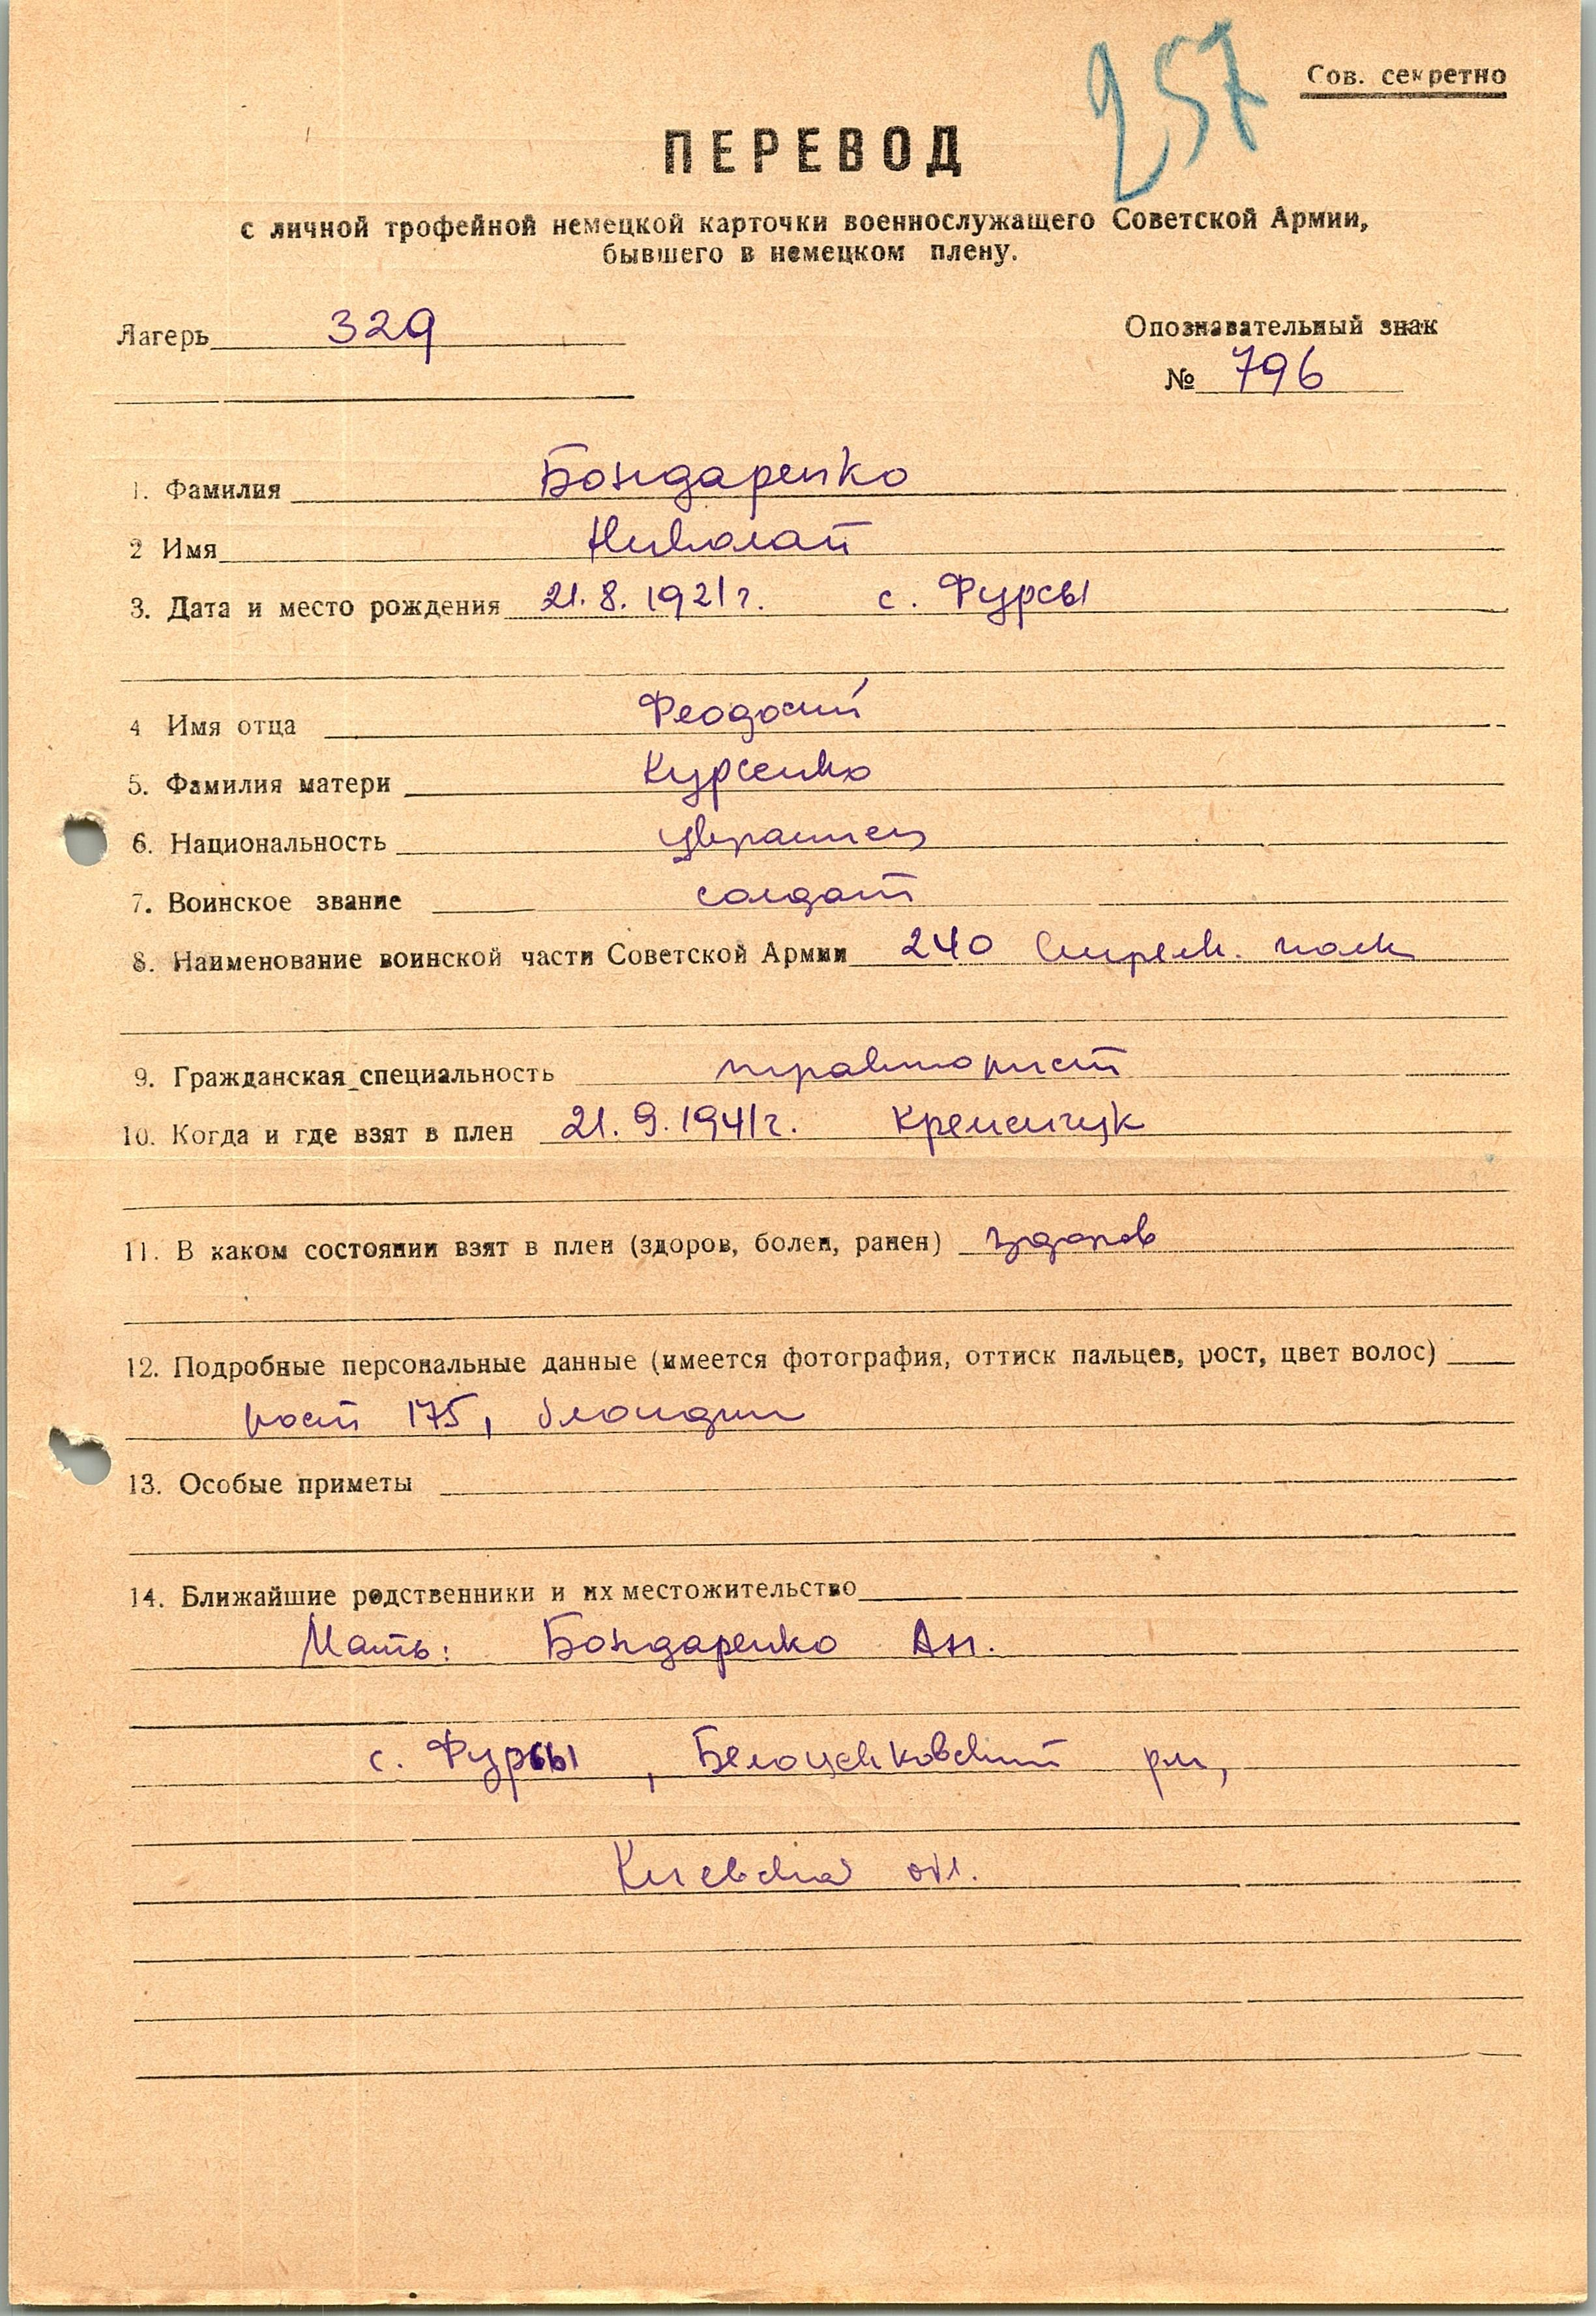 257
Сов. секретно
ПЕРЕВОД
с личной трофейной немецкой карточки военнослужащего Советской Армии,
бывшего в немецком плену.
Лагерь 329
Опознавательный знак
№ 796
1. Фамилия Бондаренко
2 Имя Николай
3. Дата и место рождения 21.8.1921г. с. Фурсы
4 Имя отца Феодосий
5. Фамилия матери Курсенко
6. Национальность украинец
7. Воинское звание солдат
8. Наименование воинской части Советской Армии 240 Стрелк. полк
9. Гражданская специальность тракторист
10. Когда и где взят в плен 21.9.1941г. Кременчук
11. В каком состоянии взят в плен (здоров, болен, ранен) здоров
12. Подробные персональные данные (имеется фотография, оттиск пальцев, рост, цвет волос)
рост 175, блондин
13. Особые приметы
14. Ближайшие родственники и их местожительство
Мать: Бондаренко Ан.
с. Фурсы, Белоценковский рн,
Киевская обл.